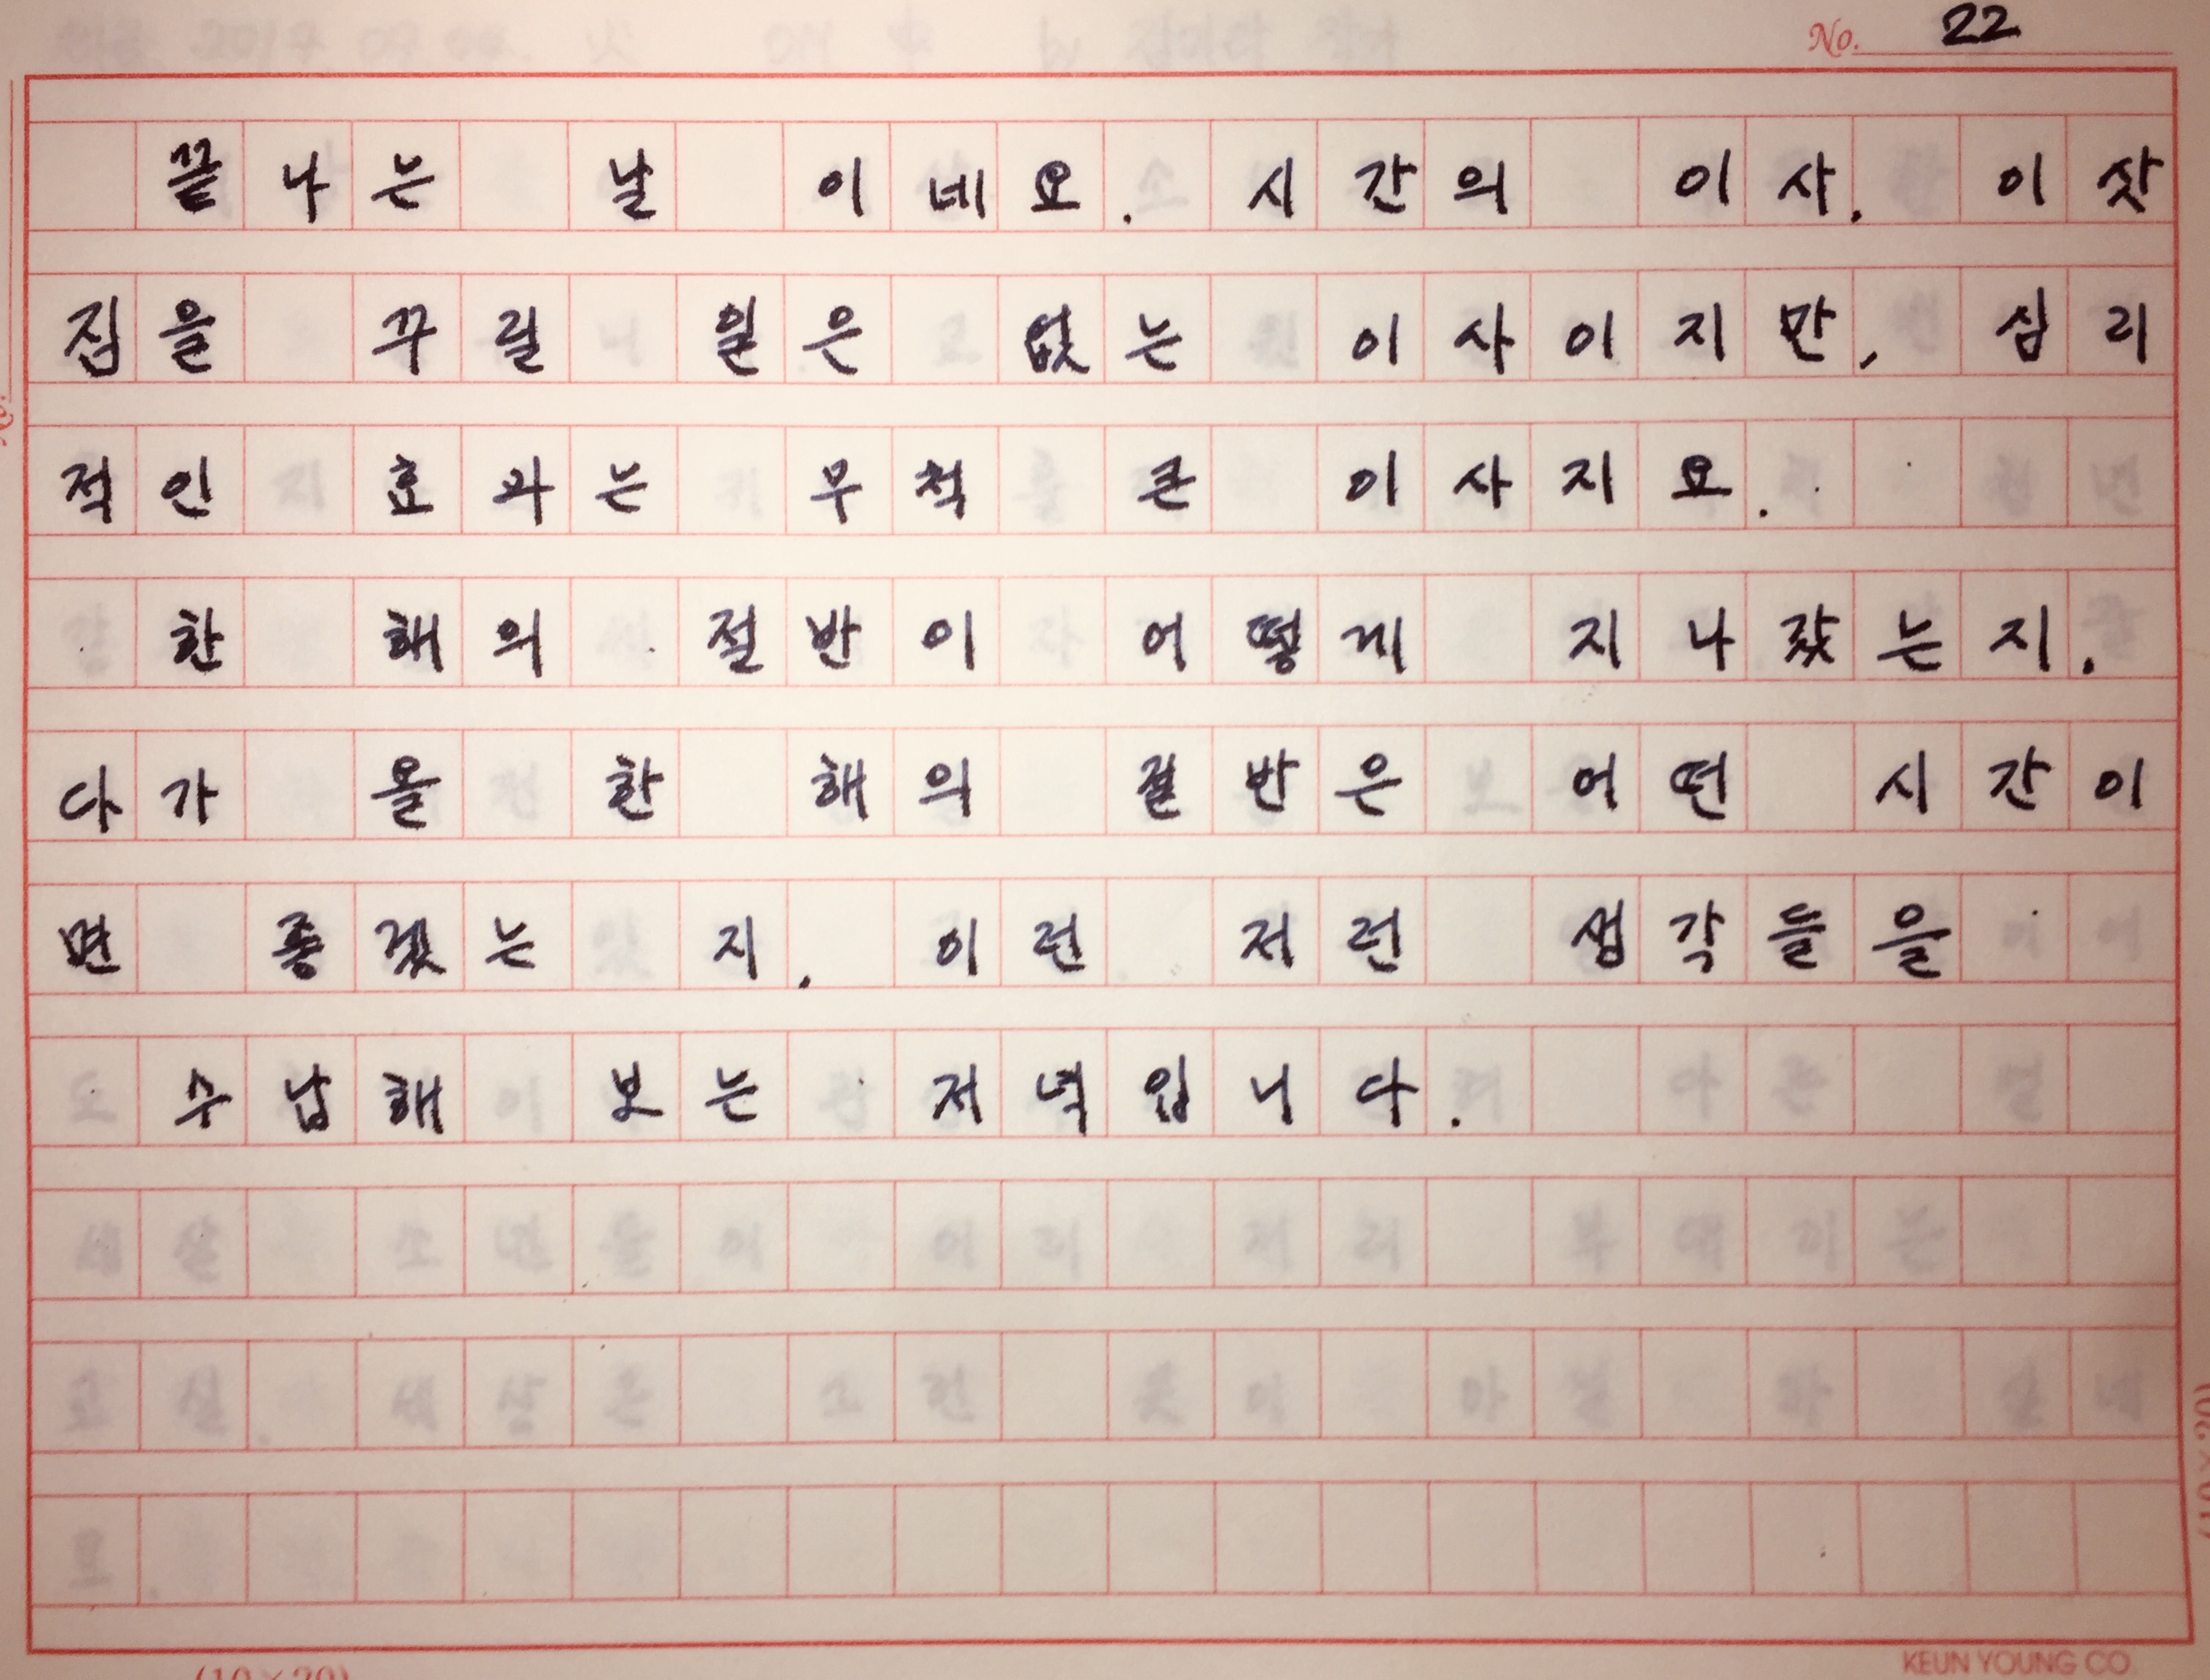 No. 22
끝나는 날 이네요. 시간의 이사. 이삿
짐을 꾸릴 일은 없는 이사이지만, 심리
적인 효과는 무척 큰 이사지요.
한 해의 절반이 어떻게 지나갔는지.
다가 올 한 해의 절반은 어떤 시간이
면 좋겠는지. 이런 저런 생각들을
수납해 보는 저녁입니다.
KEUN YOUNG CO.
(10×20)